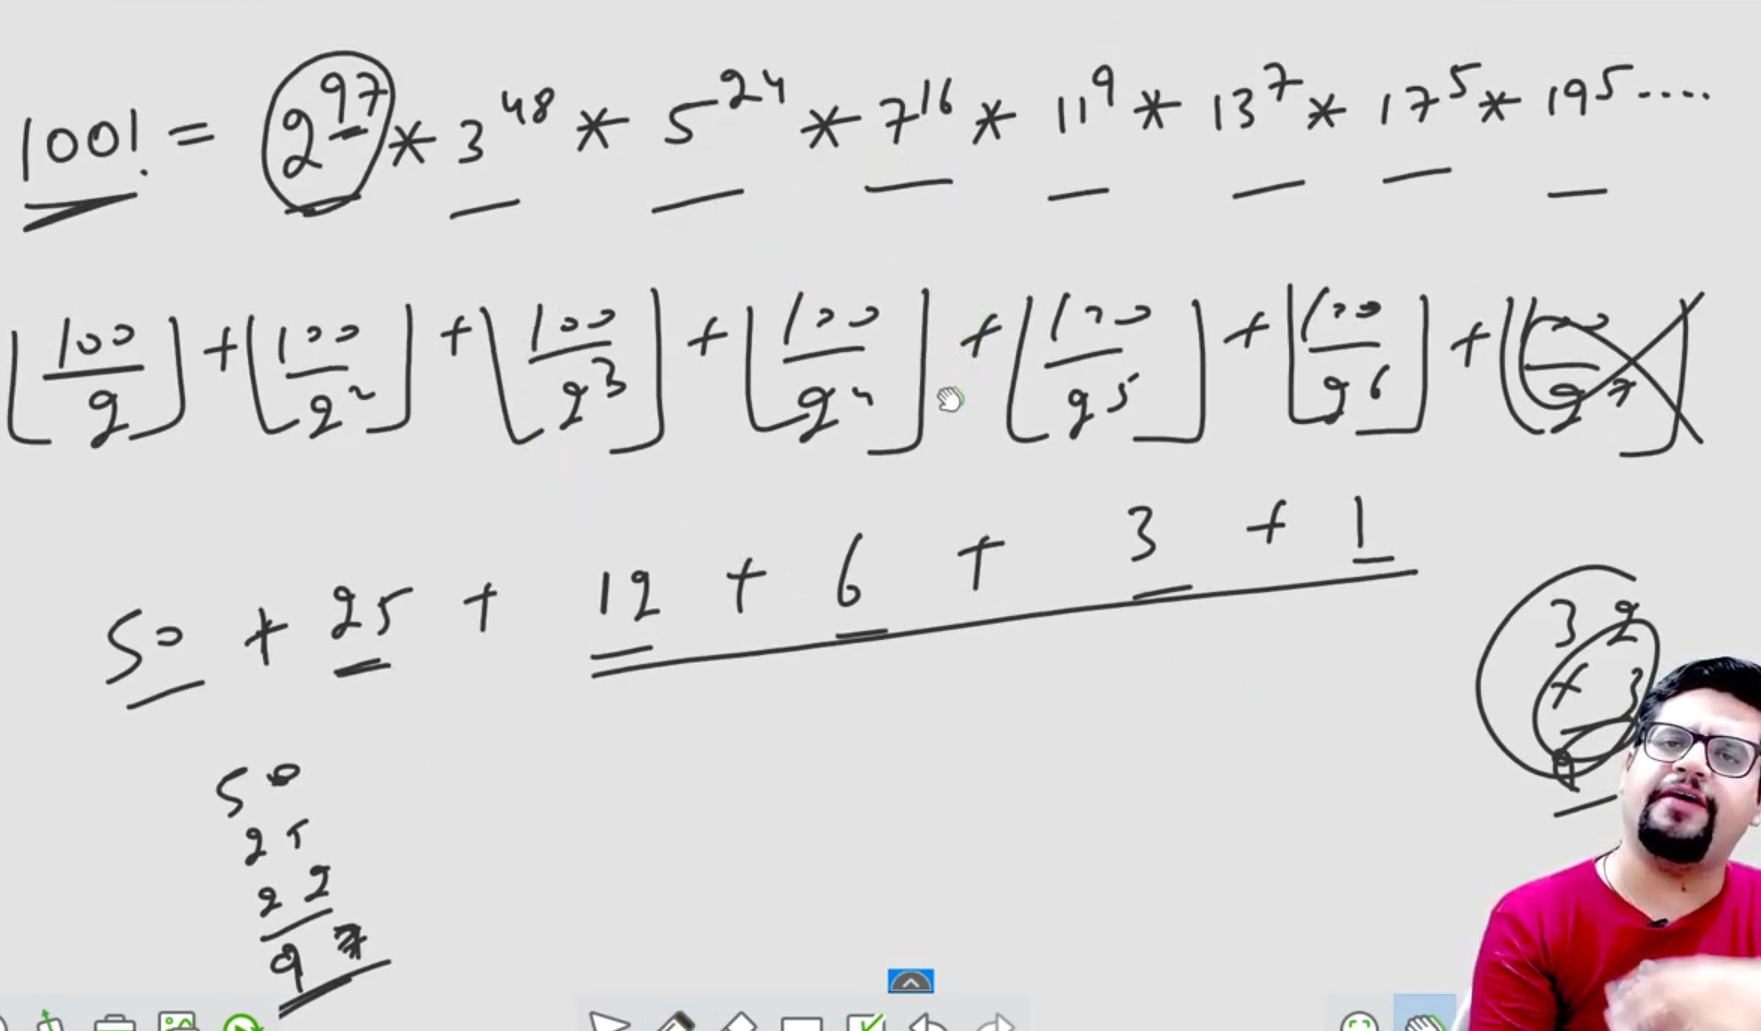 100! = 2^97 * 3^48 * 5^24 * 7^16 * 11^9 * 13^7 * 17^5 * 19^5 ....
⌊100/2⌋ + ⌊100/2^2⌋ + ⌊100/2^3⌋ + ⌊100/2^4⌋ + ⌊100/2^5⌋ + ⌊100/2^6⌋ + ⌊100/2^7⌋
50 + 25 + 12 + 6 + 3 + 1
32
+ 3
50
25
22
97